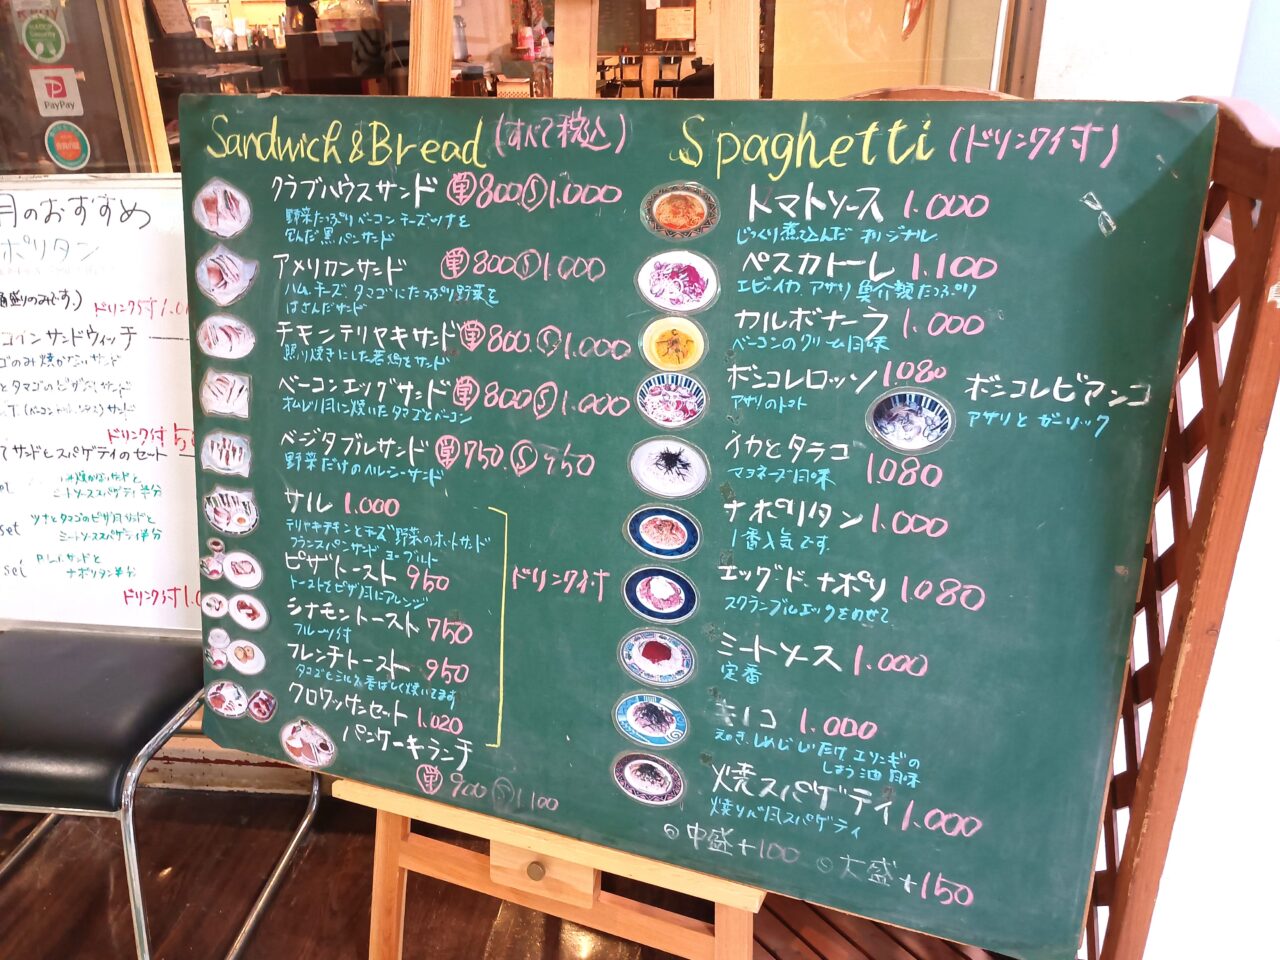 Security
PayPay
月のおすすめ
ポリタン
盛りのみです。)
ドリンク付
コインサンドウィッチ
ゴのみ焼かないサンド
とタマゴのピザ風サンド
サンド
ドリンク付
サンドとスパゲティのセット
サンドと
ミートソーススパゲティ半分
set
ツナとタマゴのピザ風サンドと
ミートソーススパゲティ半分
set
B.L.T.サンドと
ナポリタン半分
ドリンク付
Sandwich&Bread (すべて税込)
クラブハウスサンド 単800 S1.000
野菜たっぷりベーコンチーズツナを
包んだ黒パンサンド
アメリカンサンド 単800 S1.000
ハム、チーズ、タマゴにたっぷり野菜を
はさんだサンド
チキンテリヤキサンド 単800. S1.000
照り焼きにした若鶏をサンド
ベーコンエッグサンド 単800 S1.000
オムレツ風に焼いたタマゴとベーコン
ベジタブルサンド 単750. S950
野菜だけのヘルシーサンド
サル 1.000
テリヤキチキンとチーズ野菜のホットサンド
フランスパンサンド ヨーグルト
ピザトースト 950
トーストをピザ風にアレンジ
シナモントースト 750
フルーツ付
フレンチトースト 950
タマゴとミルク、香ばしく焼いてます
クロワッサンセット 1.020
パンケーキランチ
単900 S1.100
ドリンク付
Spaghetti (ドリンク付)
トマトソース 1.000
じっくり煮て込んだ オリジナル
ペスカトーレ 1.100
エビ・イカ アサリ 魚介類たっぷり
カルボナーラ 1.000
ベーコンのクリーム風味
ボンゴレロッソ 1.080
アサリのトマト
ボンゴレビアンコ
アサリと ガーリック
イカとタラコ 1.080
マヨネーズ風味
ナポリタン 1.000
1番人気です。
エッグ・ド・ナポリ 1.080
スクランブルエッグをのせて
ミートソース 1.000
定番
キノコ 1.000
えのき、しめじ、しいたけ、エリンギの
しょう油風味
焼スパゲティ 1.000
焼そば風スパゲティ
◎中盛+100 ◎大盛+150